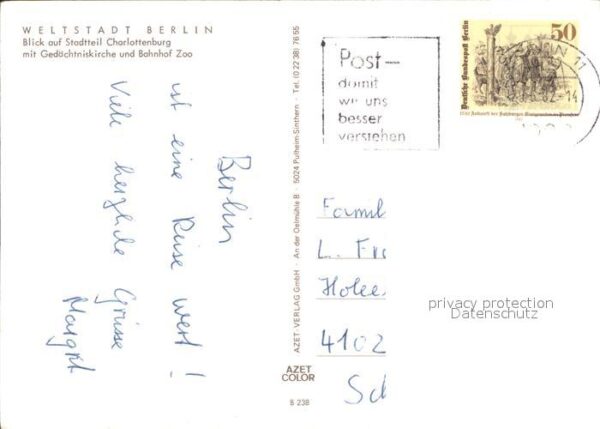 WELTSTADT BERLIN
Blick auf Stadtteil Charlottenburg
mit Gedächtniskirche und Bahnhof Zoo
Berlin
ist eine Reise wert!
Viele herzliche Grüsse
Margrit
AZET VERLAG GmbH · An der Oelmühle B · 5024 Pulheim-Sinthern · Tel. (0 22 38) 76 55
AZET
COLOR
B 238
Post-
damit
wir uns
besser
verstehen
50
Deutsche Bundespost Berlin
Famil
L. Fr
Holee
4102
privacy protection
Datenschutz